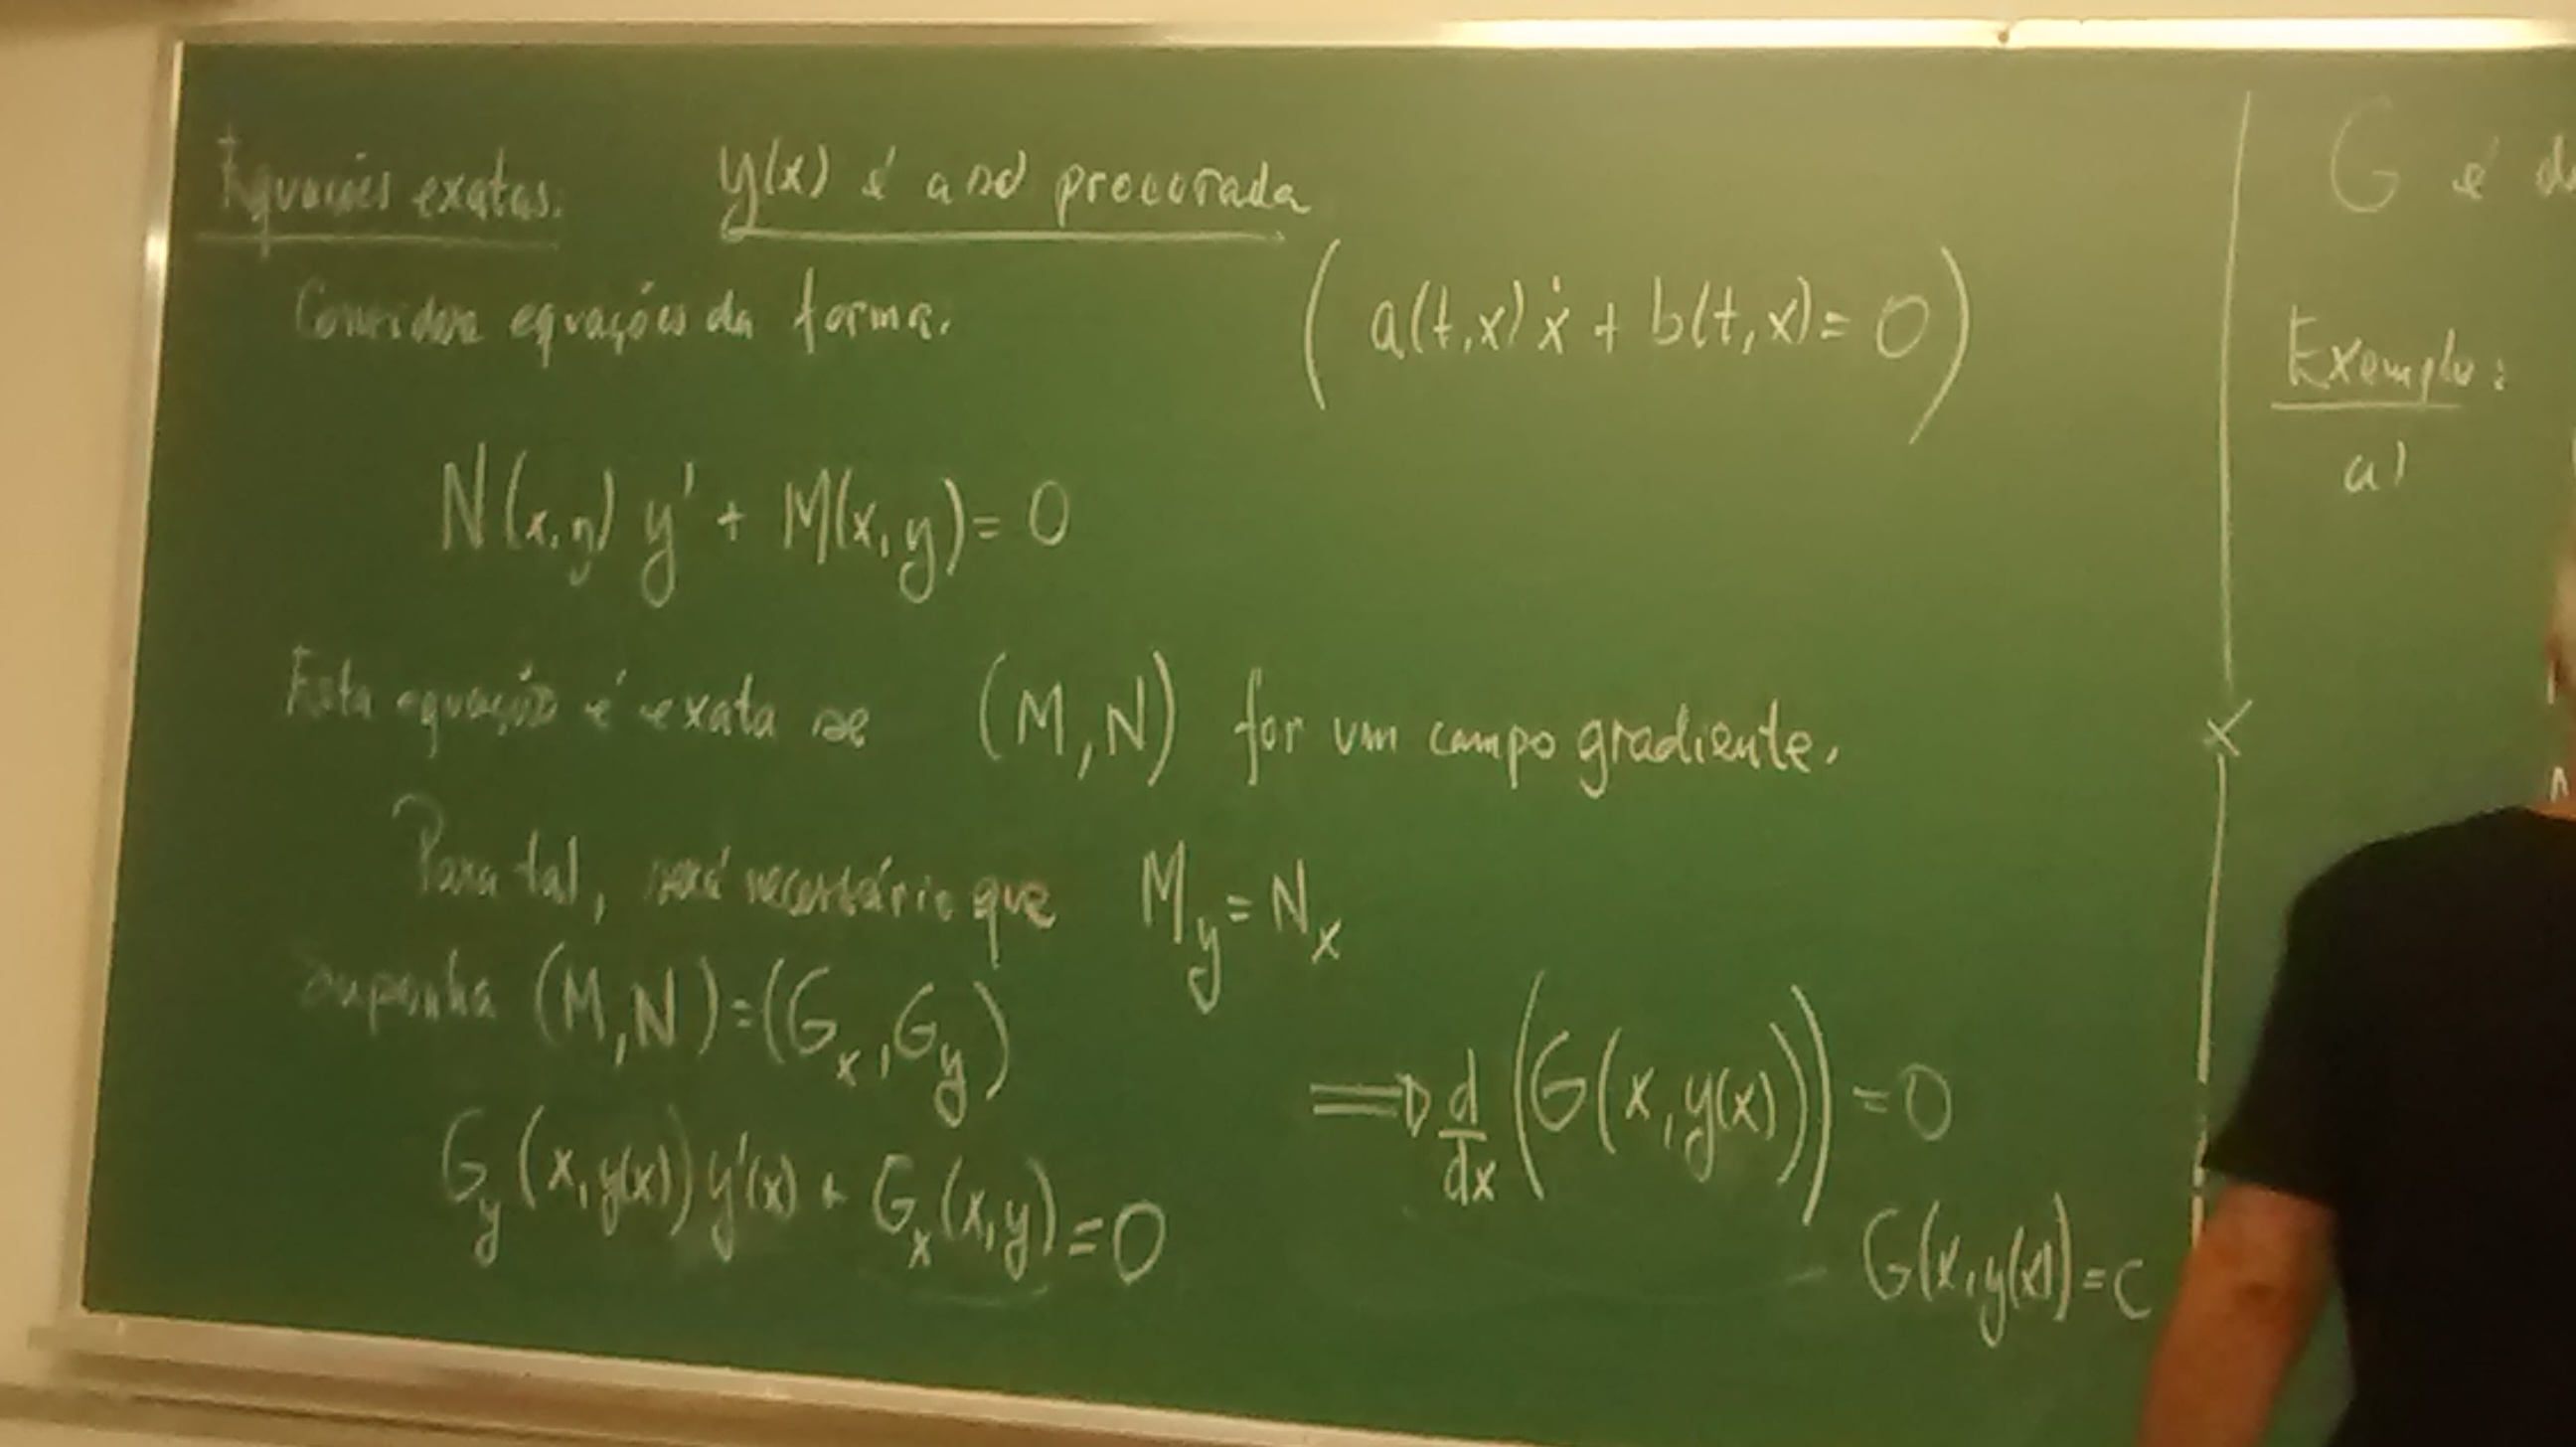 Equações exatas: y(x) é a sol procurada
Considere equações da forma. ( a(t,x) ẋ + b(t,x) = 0 )
N(x,y) y' + M(x,y) = 0
Esta equação é exata se (M,N) for um campo gradiente.
Para tal, será necessário que M_y = N_x
Suponha (M,N) = (G_x, G_y)
G_y (x,y(x)) y'(x) + G_x (x,y) = 0
⟹ d/dx (G(x,y(x))) = 0
G(x,y(x)) = c
G é
Exemplo:
a)